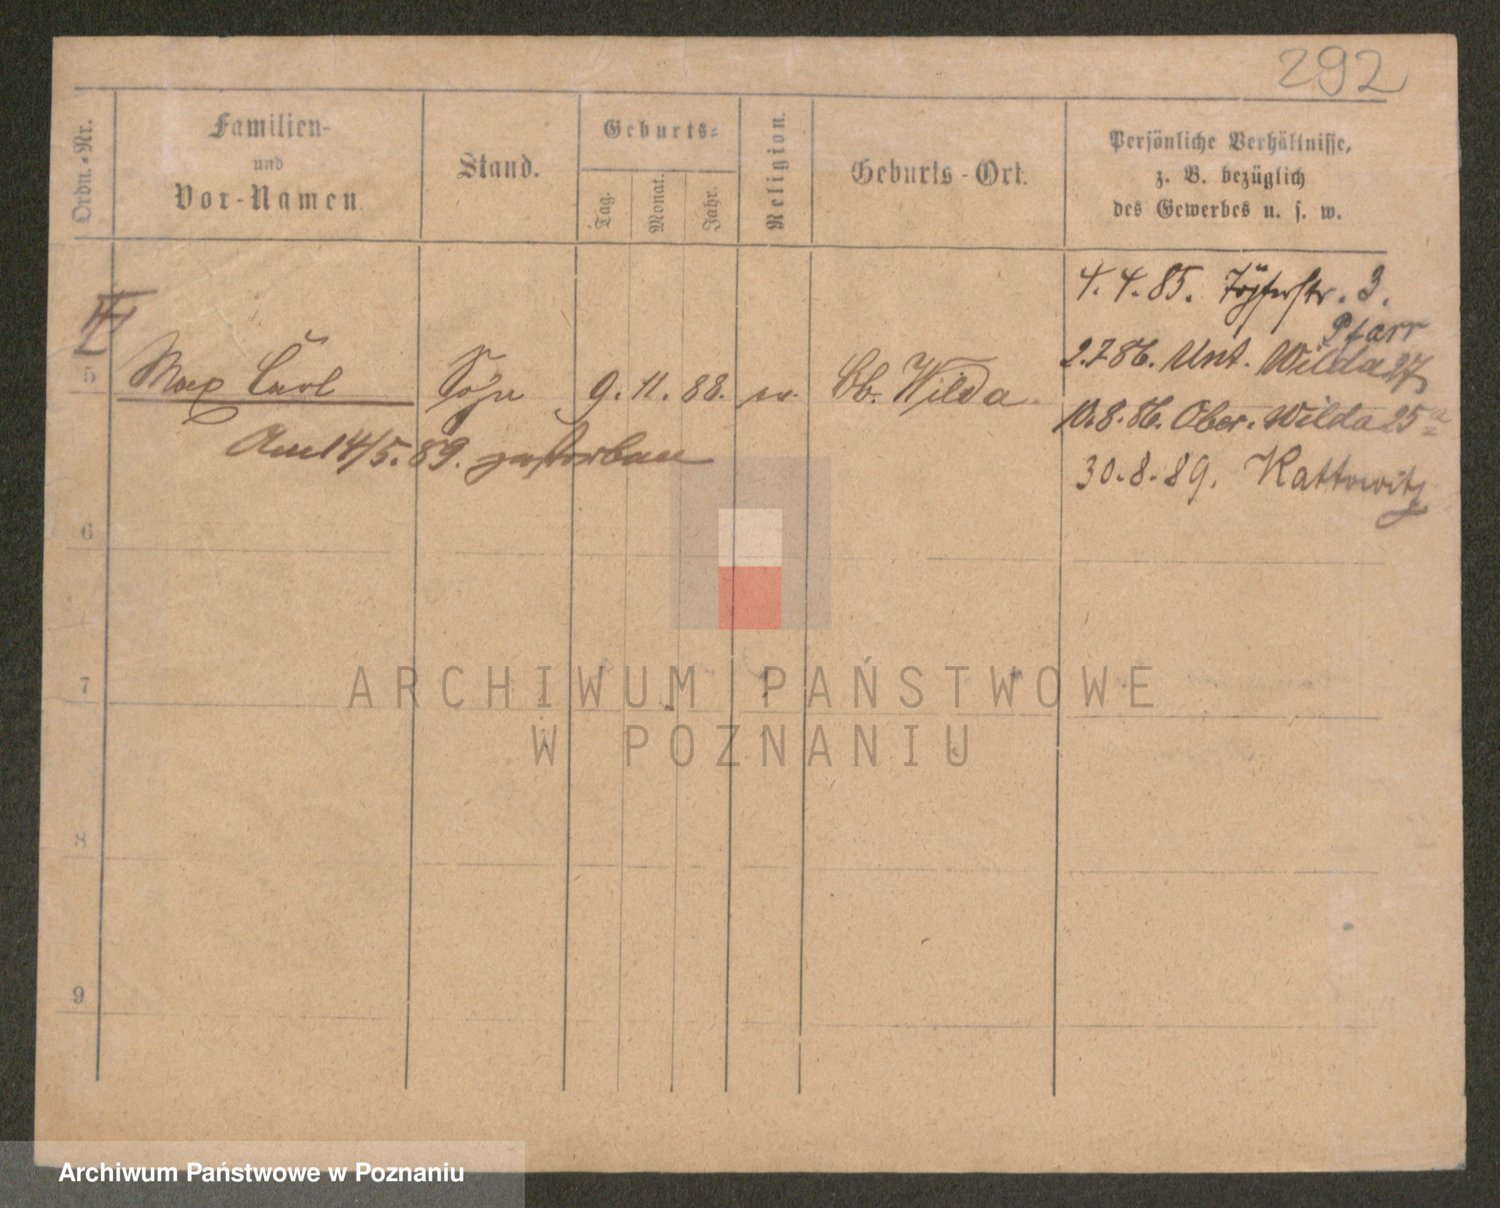 292
Ordn.-Nr.
Familien-
und
Vor-Namen.
Stand.
Geburts-
Tag.
Monat.
Jahr.
Religion.
Geburts-Ort.
Persönliche Verhältnisse,
z. B. bezüglich
des Gewerbes u. s. w.
4. 4. 85. Töpferstr. 3.
Pfarr
2.7.86. Unt. Wilda 27
5 Max Carl Sohn 9. 11. 88. ev. Ob. Wilda.
10.8.86. Ober. Wilda 25a
Am 14/5. 89. gestorben
30.8.89. Kattowitz
6
7
8
9
ARCHIWUM PAŃSTWOWE
W POZNANIU
Archiwum Państwowe w Poznaniu